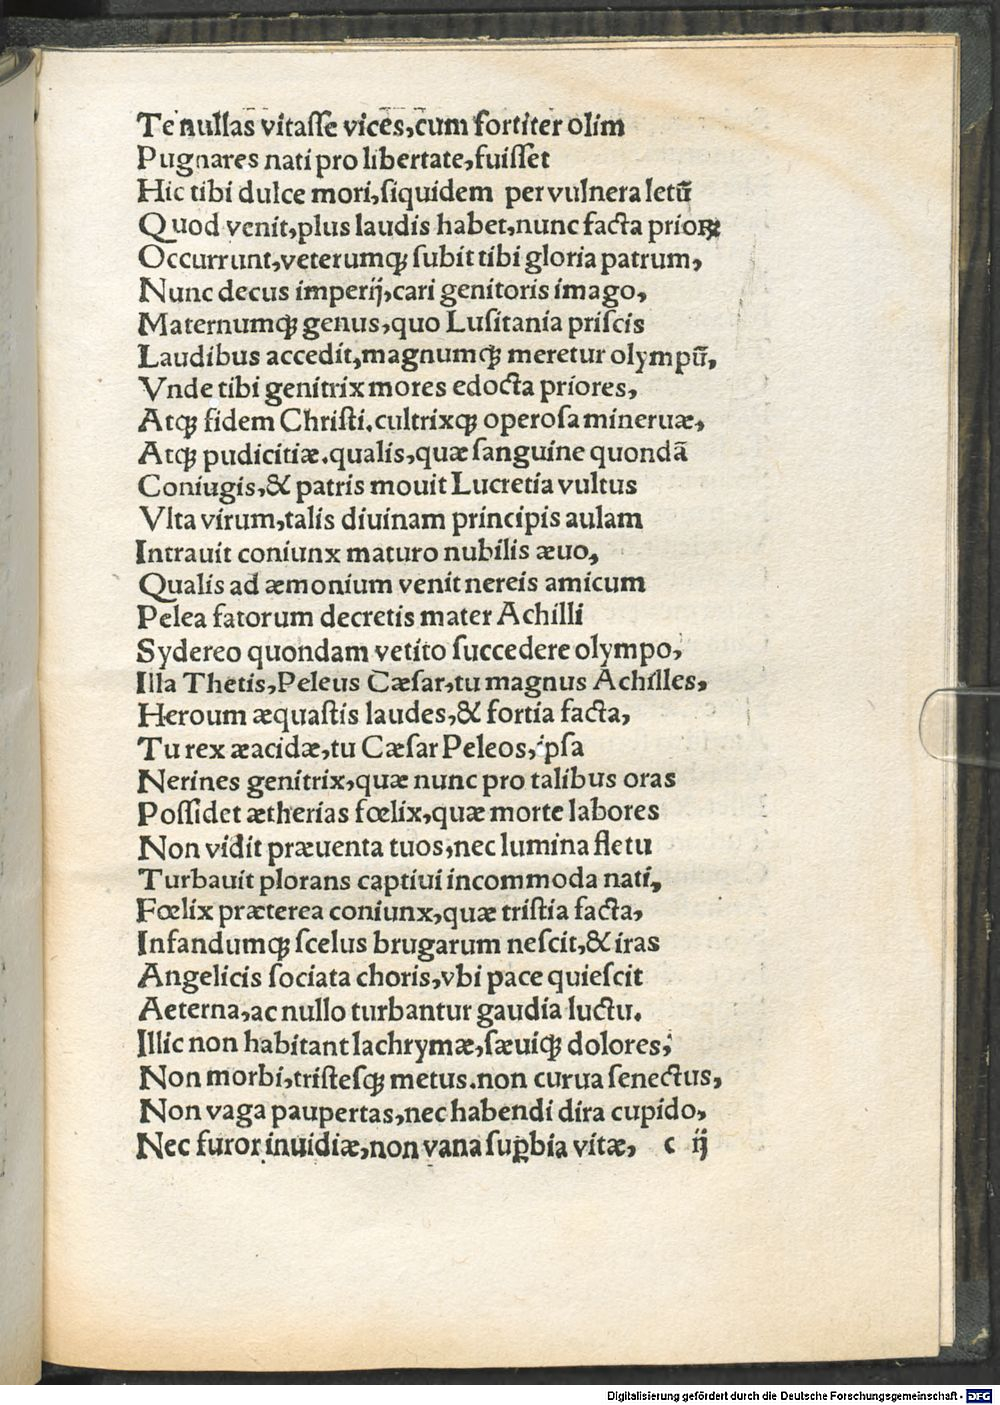 Te nullas vitaſſe vices,cum fortiter olim
Pugnares nati pro libertate,fuiſſet
Hic tibi dulce mori,ſiquidem per vulnera letū
Quod venit,plus laudis habet,nunc facta prioꝝ
Occurrunt,veterumqꝫ ſubit tibi gloria patrum,
Nunc decus imperij,cari genitoris imago,
Maternumqꝫ genus,quo Luſitania priſcis
Laudibus accedit,magnumqꝫ meretur olympū,
Vnde tibi genitrix mores edocta priores,
Atqꝫ fidem Chriſti.cultrixqꝫ operoſa mineruæ,
Atqꝫ pudicitiæ.qualis,quæ ſanguine quondā
Coniugis,& patris mouit Lucretia vultus
Vlta virum,talis diuinam principis aulam
Intrauit coniunx maturo nubilis æuo,
Qualis ad æmonium venit nereis amicum
Pelea fatorum decretis mater Achilli
Sydereo quondam vetito ſuccedere olympo,
Illa Thetis,Peleus Cæſar,tu magnus Achilles,
Heroum æquaſtis laudes,& fortia facta,
Tu rex æacidæ,tu Cæſar Peleos,ipſa
Nerines genitrix,quæ nunc pro talibus oras
Poſſidet ætherias fœlix,quæ morte labores
Non vidit præuenta tuos,nec lumina fletu
Turbauit plorans captiui incommoda nati,
Fœlix præterea coniunx,quæ triſtia facta,
Infandumqꝫ ſcelus brugarum neſcit,& iras
Angelicis ſociata choris,vbi pace quieſcit
Aeterna,ac nullo turbantur gaudia luctu.
Illic non habitant lachrymæ,ſæuiqꝫ dolores,
Non morbi,triſteſqꝫ metus.non curua ſenectus,
Non vaga paupertas,nec habendi dira cupido,
Nec furor inuidiæ,non vana ſuꝑbia vitæ, c ij
Digitalisierung gefördert durch die Deutsche Forschungsgemeinschaft - DFG